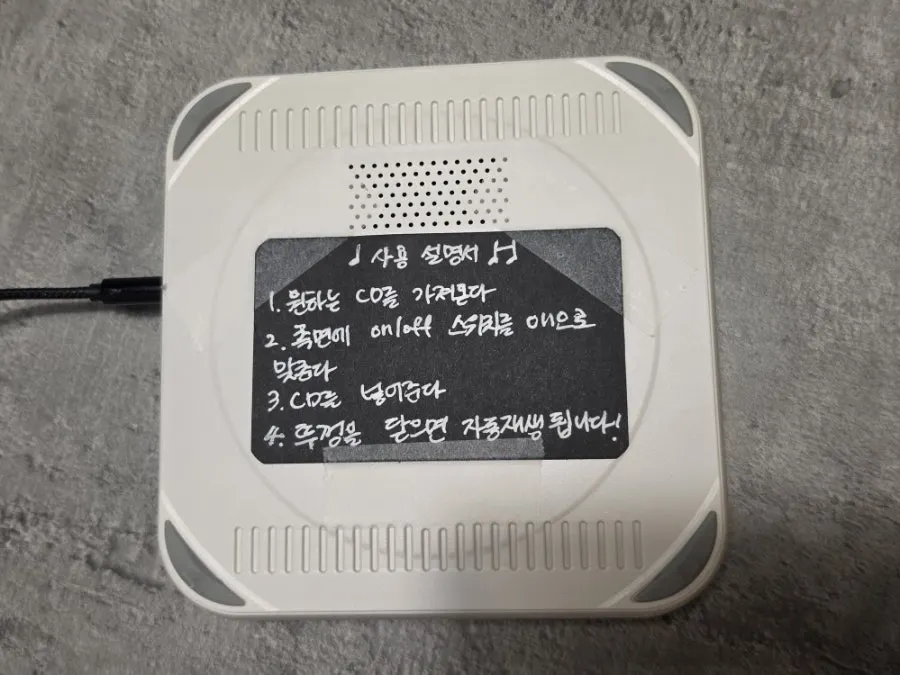 ♩ 사용 설명서 ♪♫
1. 원하는 CD를 가져온다
2. 측면에 on/off 스위치를 on으로
맞춘다
3. CD를 넣어준다
4. 뚜껑을 닫으면 자동재생 됩니다!